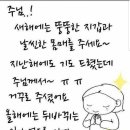 주님,!
새해에는 뚱뚱한 지갑과
날씬한 몸매를 주세요~
지난해에도 기도 드렸는데
주님께서~ ㅠㅠ
거꾸로 주셨어요
올해에는 뒤바뀌는